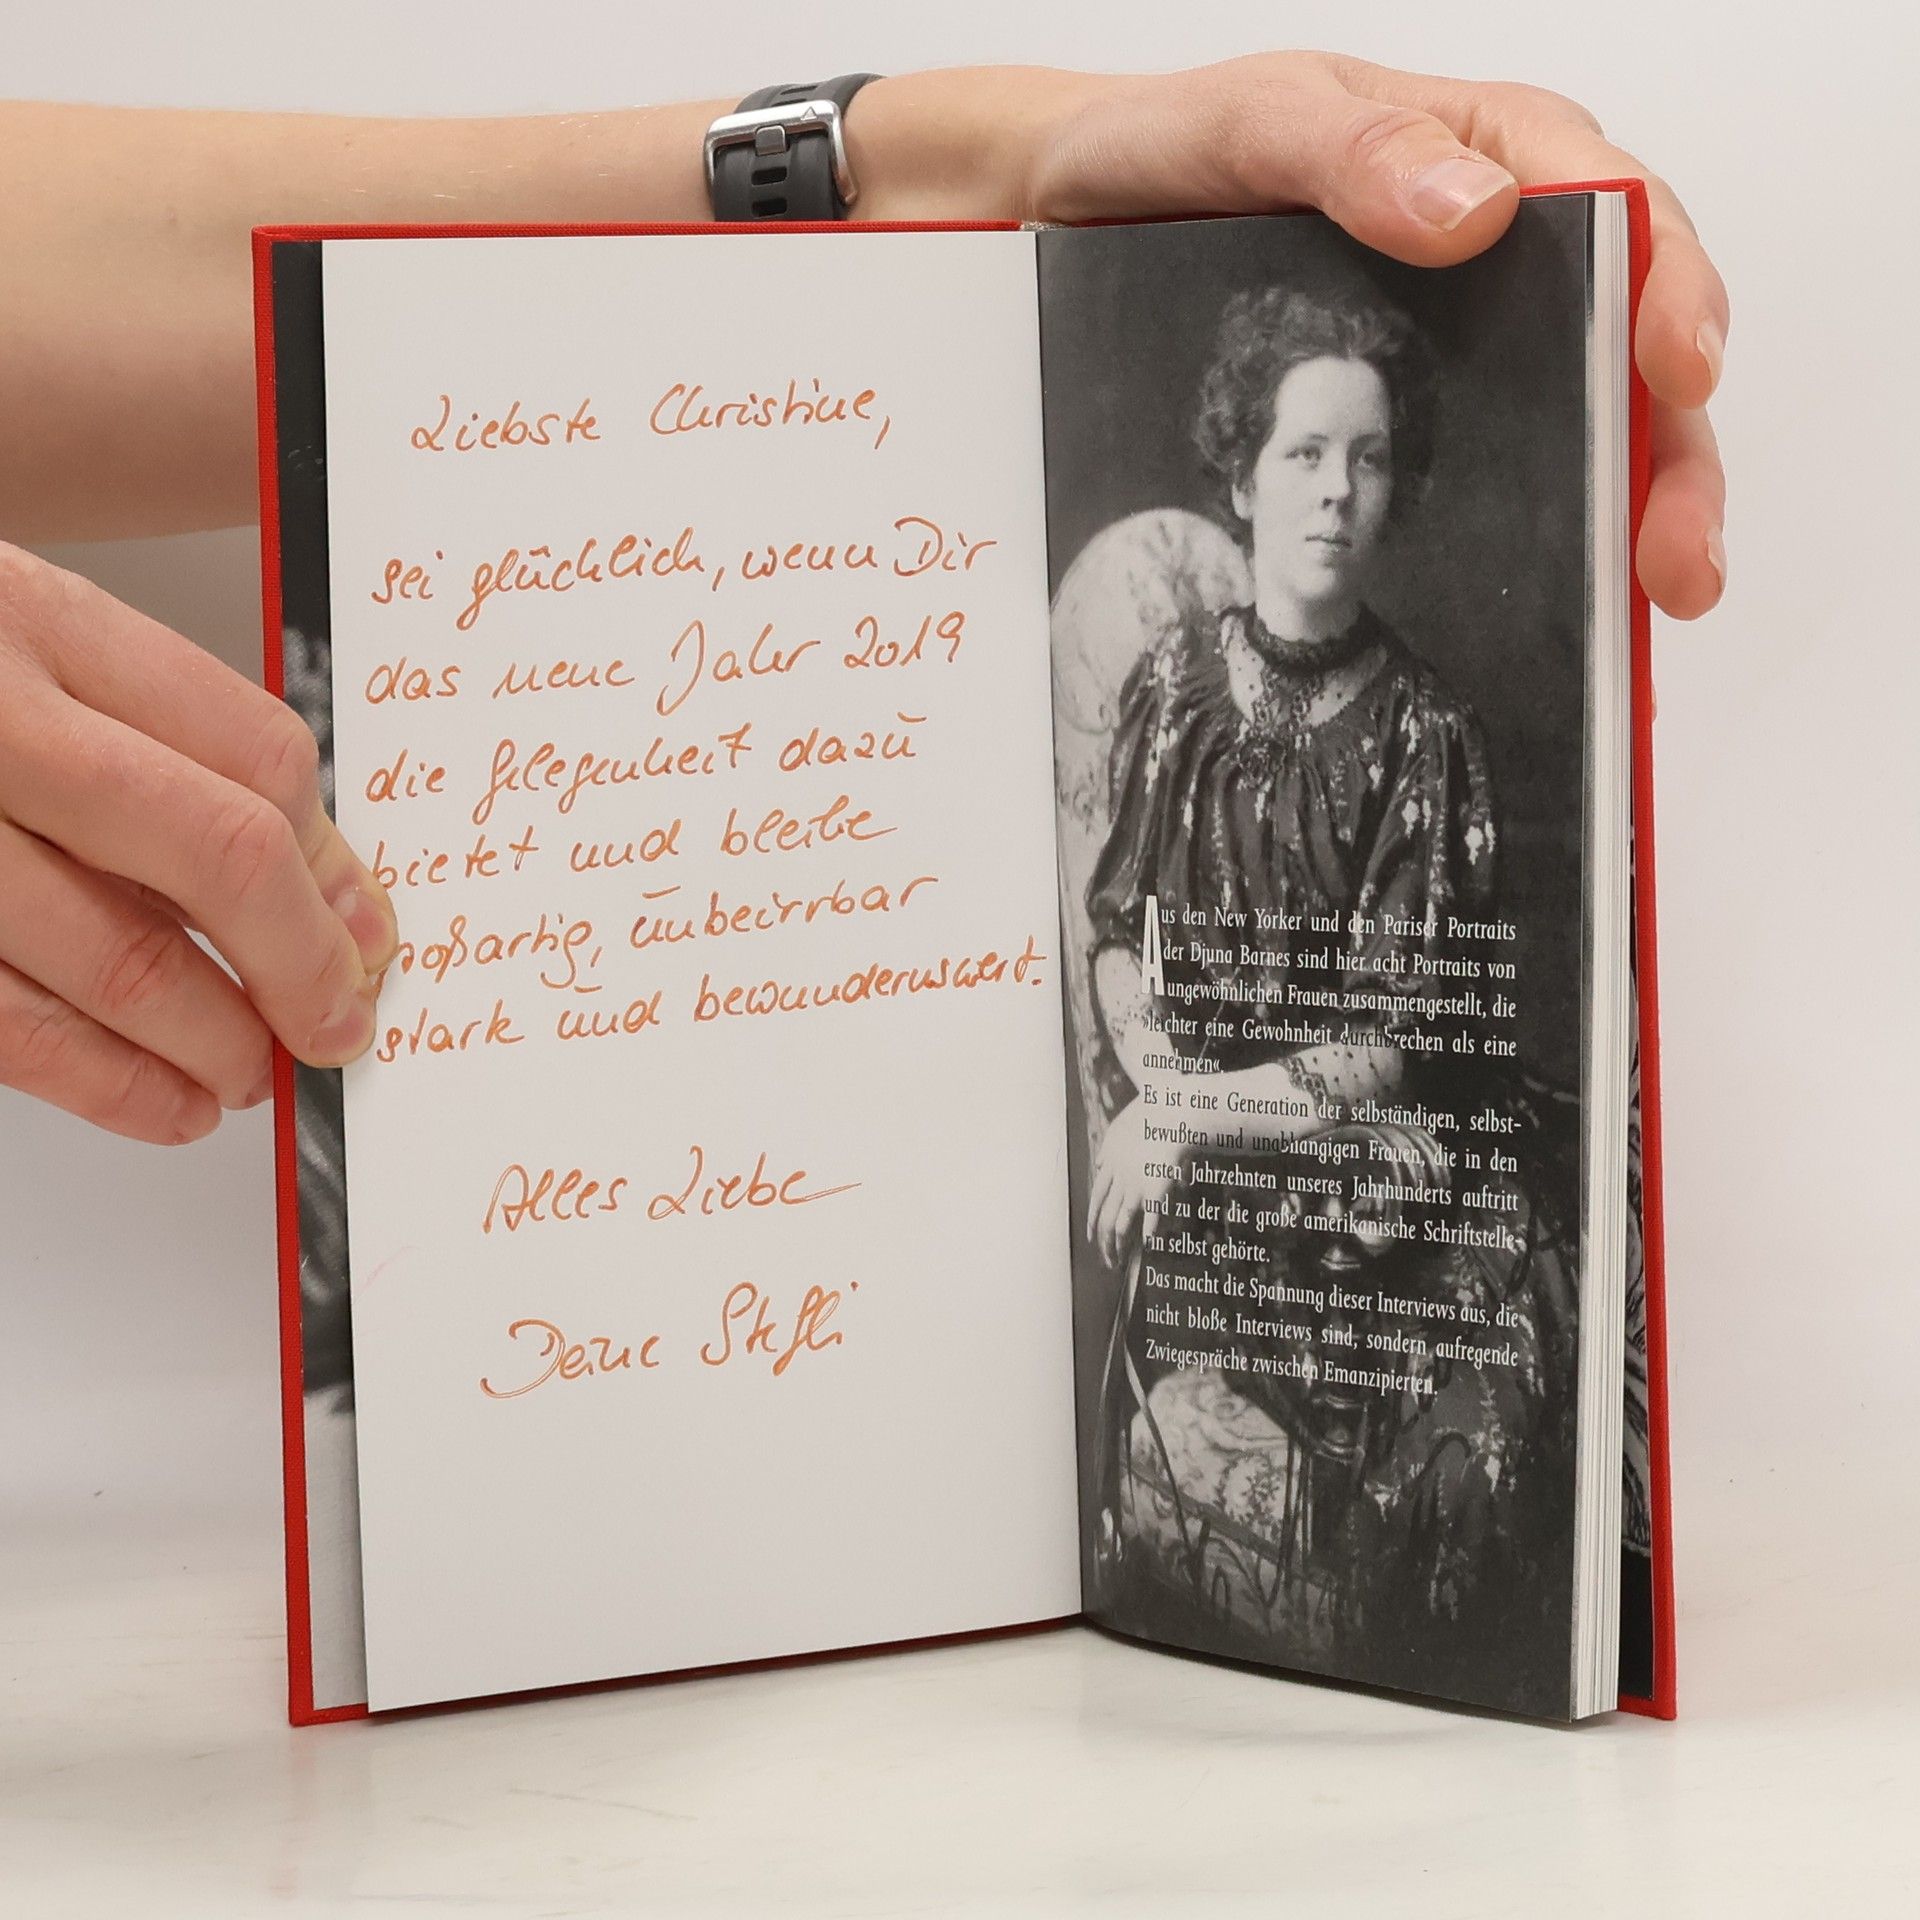 Liebste Christine,
sei glücklich, wenn Dir
das neue Jahr 2019
die Gelegenheit dazu
bietet und bleibe
großartig, unbeirrbar
stark und bewundernswert.
Alles Liebe
Deine Steffi
Aus den New Yorker und den Pariser Portraits
der Djuna Barnes sind hier acht Portraits von
ungewöhnlichen Frauen zusammengestellt, die
»leichter eine Gewohnheit durchbrechen als eine
annehmen«.
Es ist eine Generation der selbständigen, selbst-
bewußten und unabhangigen Frauen, die in den
ersten Jahrzehnten unseres Jahrhunderts auftritt
und zu der die große amerikanische Schriftstelle-
rin selbst gehörte.
Das macht die Spannung dieser Interviews aus, die
nicht bloße Interviews sind, sondern aufregende
Zwiegespräche zwischen Emanzipierten.